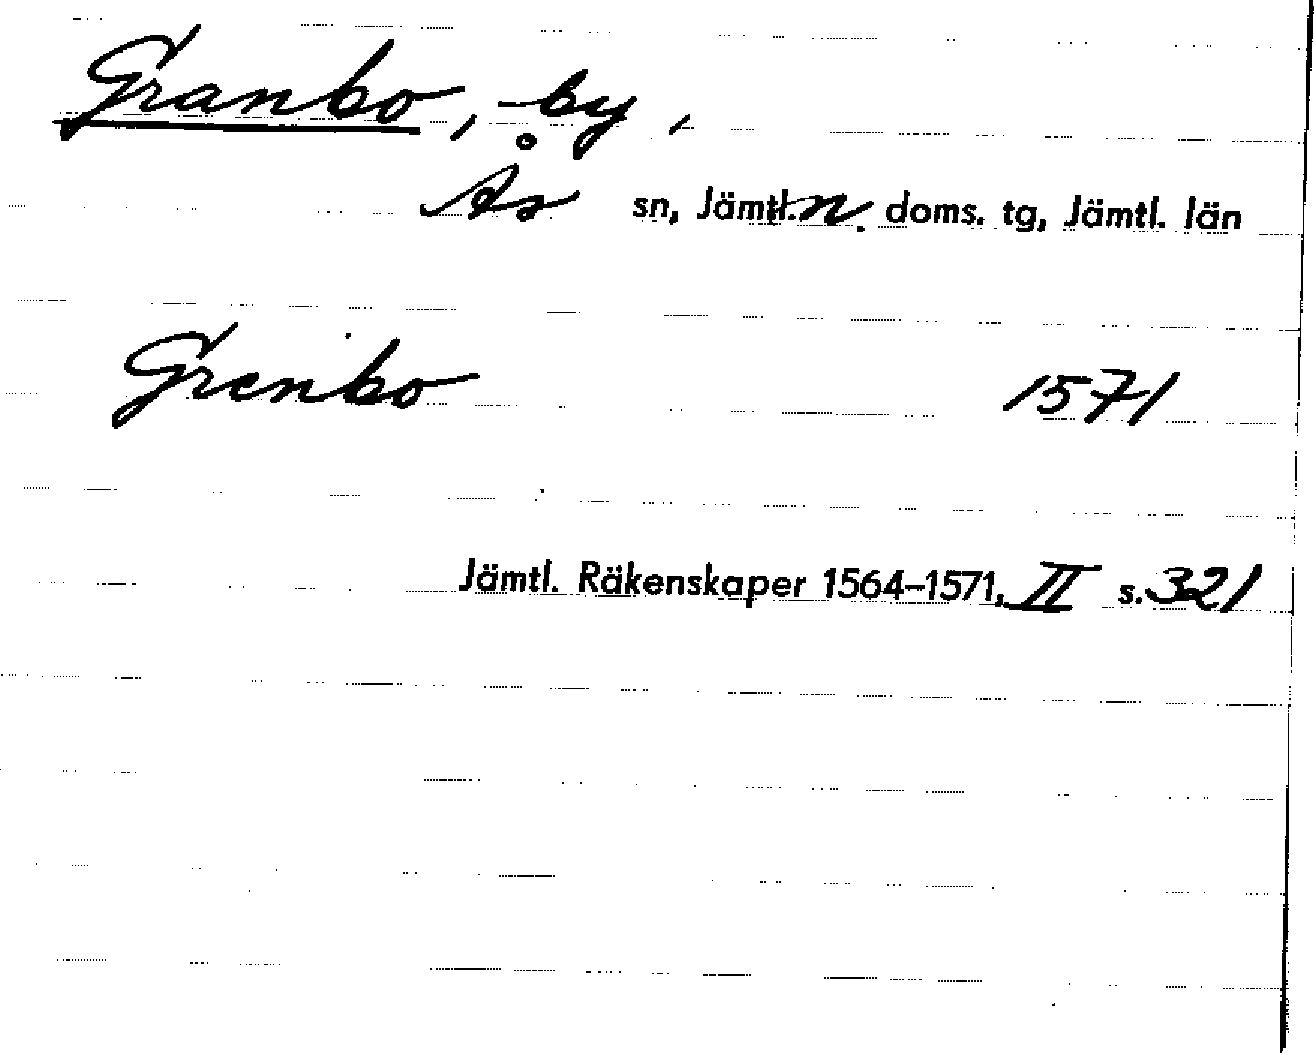 Granbo, by,
Ås sn, Jämtl. n. doms. tg, Jämtl. län
Grenbo 1571
Jämtl. Räkenskaper 1564–1571, II s. 321